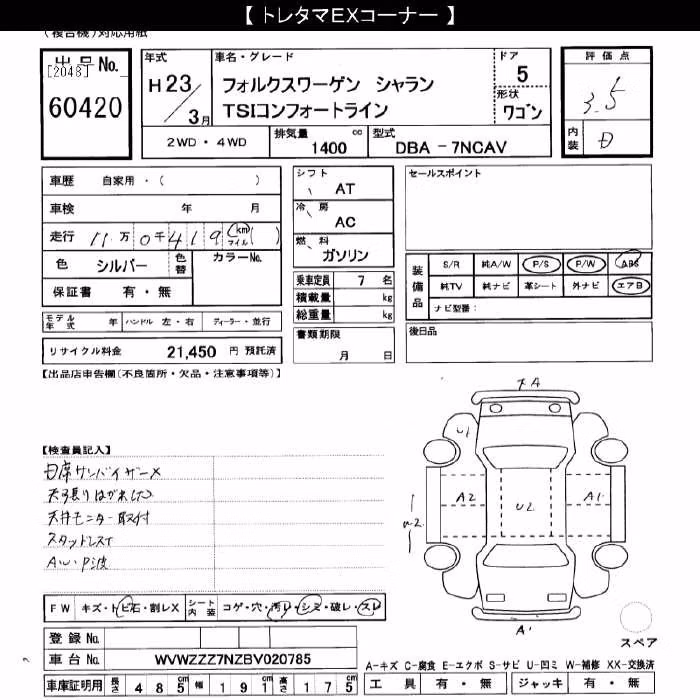 【 トレタマEXコーナー 】
(複合機)対応用紙
出品No.
[2048]
60420
年式
H23/3月
車名・グレード
フォルクスワーゲン シャラン
TSIコンフォートライン
ドア
5
形状
ワゴン
評価点
3.5
内装
D
2WD・4WD
排気量
1400 cc
型式
DBA － 7NCAV
車歴 自家用・( )
車検 年 月
走行 11万0千419 (km マイル)( )
色 シルバー 色替 カラーNo.
保証書 有・無
モデル年式 年 ハンドル 左・右 ディーラー・並行
リサイクル料金 21,450 円 預託済
シフト
AT
冷房
AC
燃料
ガソリン
乗車定員 7 名
積載量 kg
総重量 kg
書類期限
月 日
セールスポイント
装備品
S/R 純A/W P/S P/W ABS
純TV 純ナビ 革シート 外ナビ エアB
ナビ型番:
後日品
【出品店申告欄(不良箇所・欠品・注意事項等)】
【検査員記入】
天張りはがれ
天井モニター取付
スタッドレス
AW・P波
XA
U1
A2
U2
A1
A1
スペア
FW キズ・トビ石・割レX シート内装 コゲ・穴・汚レ・シミ・破レ・スレ
登録No.
車台No. WVWZZZ7NZBV020785
車庫証明用 長さ 485 幅 191 高さ 175
A-キズ C-腐食 E-エクボ S-サビ U-凹ミ W-補修 XX-交換済
工具 有・無 ジャッキ 有・無